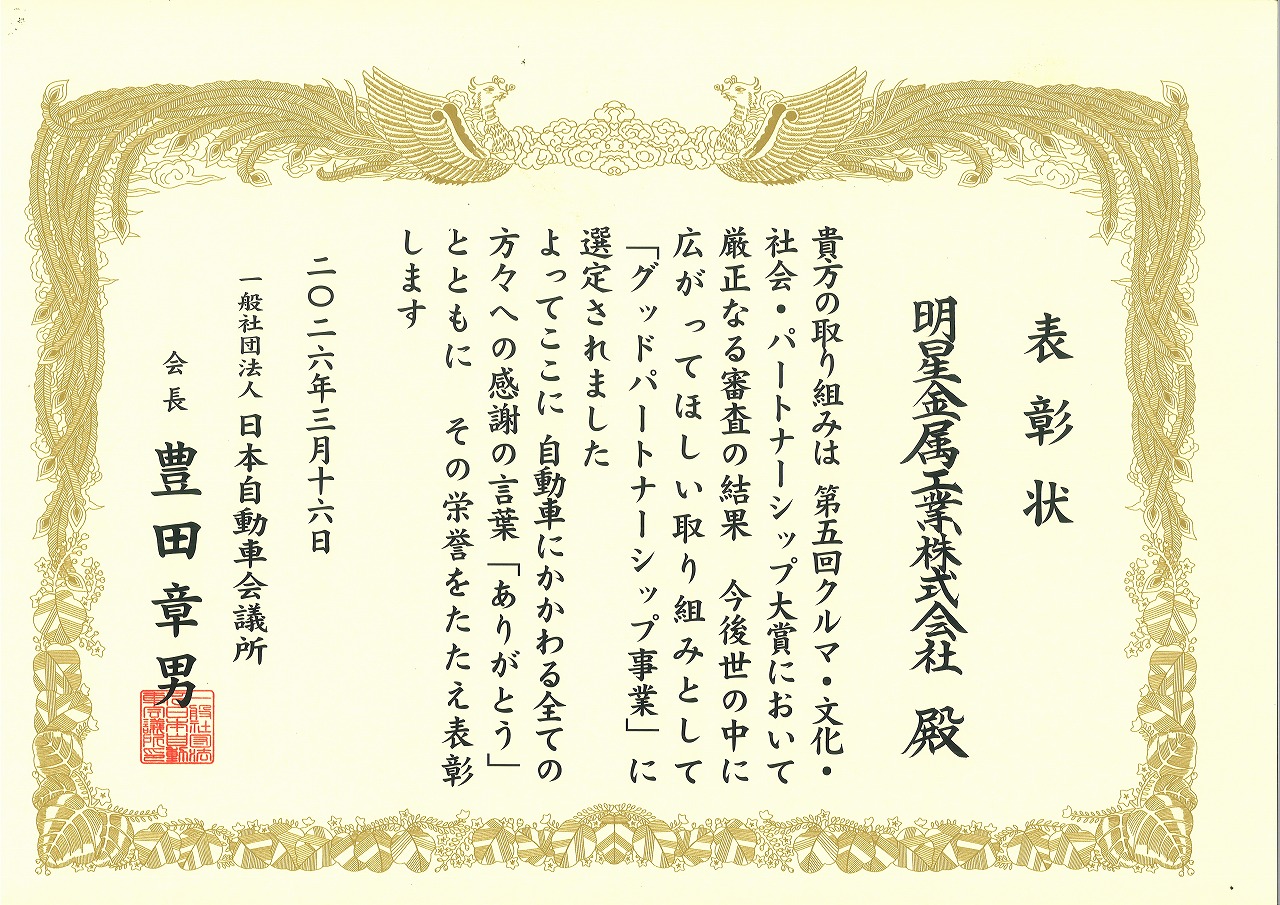 表彰状
明星金属工業株式会社 殿
貴方の取り組みは 第五回クルマ・文化・
社会・パートナーシップ大賞において
厳正なる審査の結果 今後世の中に
広がってほしい取り組みとして
「グッドパートナーシップ事業」に
選定されました
よってここに 自動車にかかわる全ての
方々への感謝の言葉「ありがとう」
とともに その栄誉をたたえ表彰
します
二〇二六年三月十六日
一般社団法人 日本自動車会議所
会長 豊田章男
一般社団法
人日本自動
車会議所印